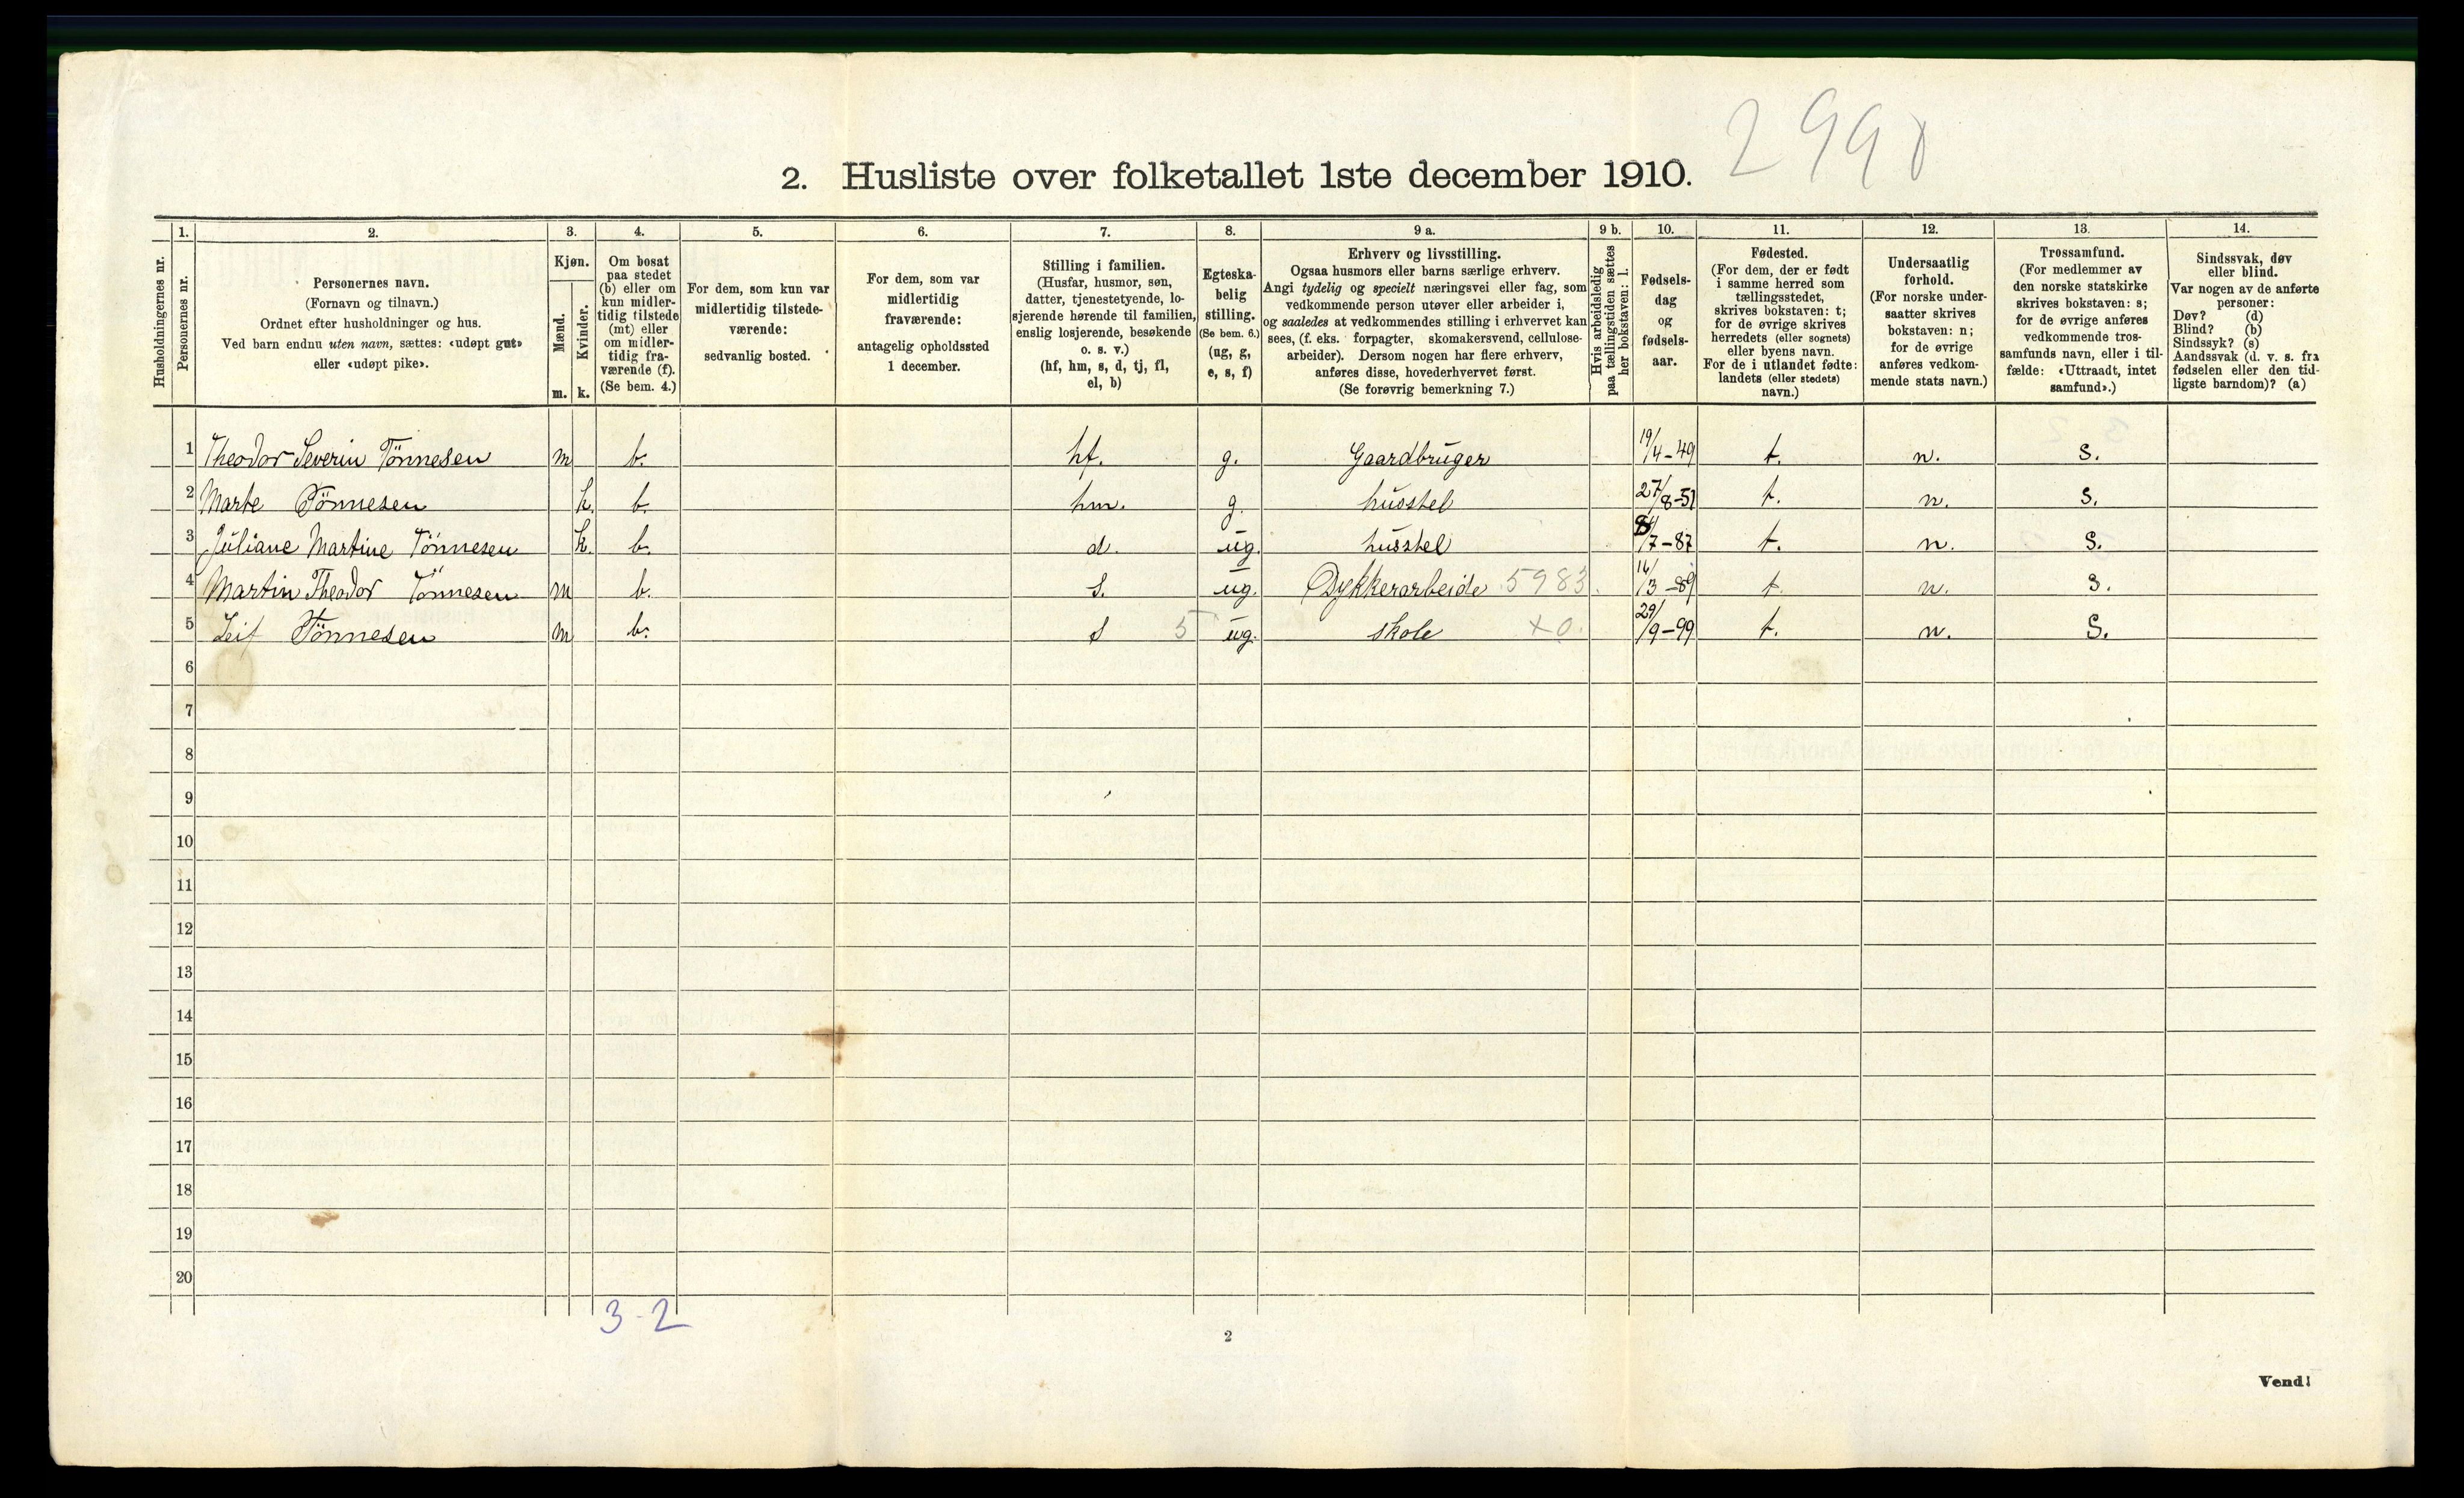 2990
2. Husliste over folketallet 1ste december 1910.
Husholdningernes nr.
1.
Personernes nr.
2.
Personernes navn.
(Fornavn og tilnavn.)
Ordnet efter husholdninger og hus.
Ved barn endnu uten navn, sættes: «udøpt gut»
eller «udøpt pike».
3.
Kjøn.
Mænd.
m.
Kvinder.
k.
4.
Om bosat
paa stedet
(b) eller om
kun midler-
tidig tilstede
(mt) eller
om midler-
tidig fra-
værende (f).
(Se bem. 4.)
5.
For dem, som kun var
midlertidig tilstede-
værende:
sedvanlig bosted.
6.
For dem, som var
midlertidig
fraværende:
antagelig opholdssted
1 december.
7.
Stilling i familien.
(Husfar, husmor, søn,
datter, tjenestetyende, lo-
sjerende hørende til familien,
enslig losjerende, besøkende
o. s. v.)
(hf, hm, s, d, tj, fl,
el, b)
8.
Egteska-
belig
stilling.
(Se bem. 6.)
(ug, g,
e, s, f)
9 a.
Erhverv og livsstilling.
Ogsaa husmors eller barns særlige erhverv.
Angi tydelig og specielt næringsvei eller fag, som
vedkommende person utøver eller arbeider i,
og saaledes at vedkommendes stilling i erhvervet kan
sees, (f. eks. forpagter, skomakersvend, cellulose-
arbeider). Dersom nogen har flere erhverv,
anføres disse, hovederhvervet først.
(Se forøvrig bemerkning 7.)
9 b.
Hvis arbeidsledig
paa tællingstiden sættes
her bokstaven: l.
10.
Fødsels-
dag
og
fødsels-
aar.
11.
Fødested.
(For dem, der er født
i samme herred som
tællingsstedet,
skrives bokstaven: t;
for de øvrige skrives
herredets (eller sognets)
eller byens navn.
For de i utlandet fødte:
landets (eller stedets)
navn.)
12.
Undersaatlig
forhold.
(For norske under-
saatter skrives
bokstaven: n;
for de øvrige
anføres vedkom-
mende stats navn.)
13.
Trossamfund.
(For medlemmer av
den norske statskirke
skrives bokstaven: s;
for de øvrige anføres
vedkommende tros-
samfunds navn, eller i til-
fælde: «Uttraadt, intet
samfund».)
14.
Sindssvak, døv
eller blind.
Var nogen av de anførte
personer:
Døv? (d)
Blind? (b)
Sindssyk? (s)
Aandssvak (d. v. s. fra
fødselen eller den tid-
ligste barndom)? (a)
1 Theodor Severin Tönnesen m b. hf. g. Gaardbruger 19/4-49 t. n. s.
2 Marte Tönnesen k. b. hm. g. husstel 27/8-51 t. n. s.
3 Juliane Martine Tönnesen k. b. d. ug. husstel /7-87 t. n. s.
4 Martin Theodor Tönnesen m b. s. ug. Dykkerarbeide 5983. 16/3-89 t. n. s.
5 Leif Tönnesen m b. s 5 ug. skole x0. 29/9-99 t. n. s.
6
7
8
9
10
11
12
13
14
15
16
17
18
19
20
3-2
2
Vend!